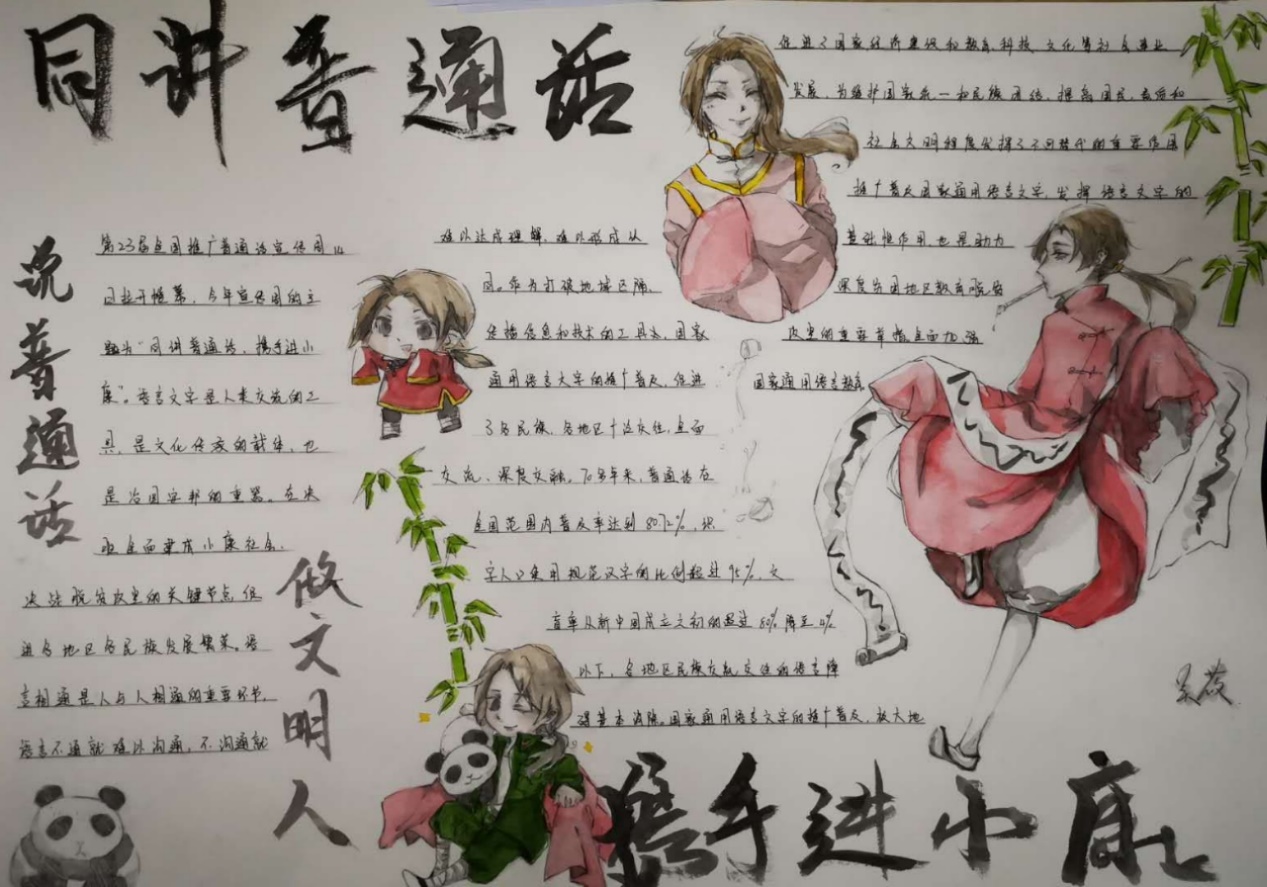 同讲普通话
说普通话
做文明人
第23届全国推广普通话宣传周以
已拉开帷幕，今年宣传周的主
题为“同讲普通话，携手进小
康”。语言文字是人类交流的工
具，是文化传承的载体，也
是治国安邦的重器。在决
胜全面建成小康社会、
决战脱贫攻坚的关键节点，促
进各地区各民族发展繁荣。语
言相通是人与人相通的重要环节，
语言不通就难以沟通，不沟通就
难以达成理解，难以形成认
同。作为打破地域区隔、
传播信息和技术的工具，国家
通用语言文字的推广普及，促进
了各民族、各地区十边交往，全面
交流、深度交融。70多年来，普通话在
全国范围内普及率达到80.72%，识
字人口使用规范汉字的比例超过95%，文
盲率从新中国成立之初的超过80%降至4%
以下，各地区民族交流交往的语言障
碍基本消除。国家通用语言文字的推广普及，极大地
促进了国家经济建设和教育科技、文化等社会事业
发展，为维护国家统一和民族团结，提高国民素质和
社会文明程度发挥了不可替代的重要作用
推广普及国家通用语言文字，发挥语言文字的
基础性作用也是助力
深度贫困地区教育脱贫
攻坚的重要举措全面加强
国家通用语言教育
携手进小康